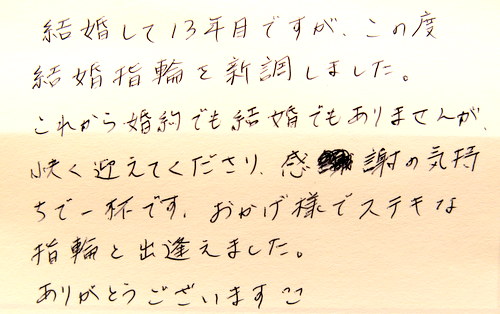 結婚して13年目ですが、この度
結婚指輪を新調しました。
これから婚約でも結婚でもありませんが、
快く迎えてくださり、感謝の気持
ちで一杯です。おかげ様でステキな
指輪と出逢えました。
ありがとうございます